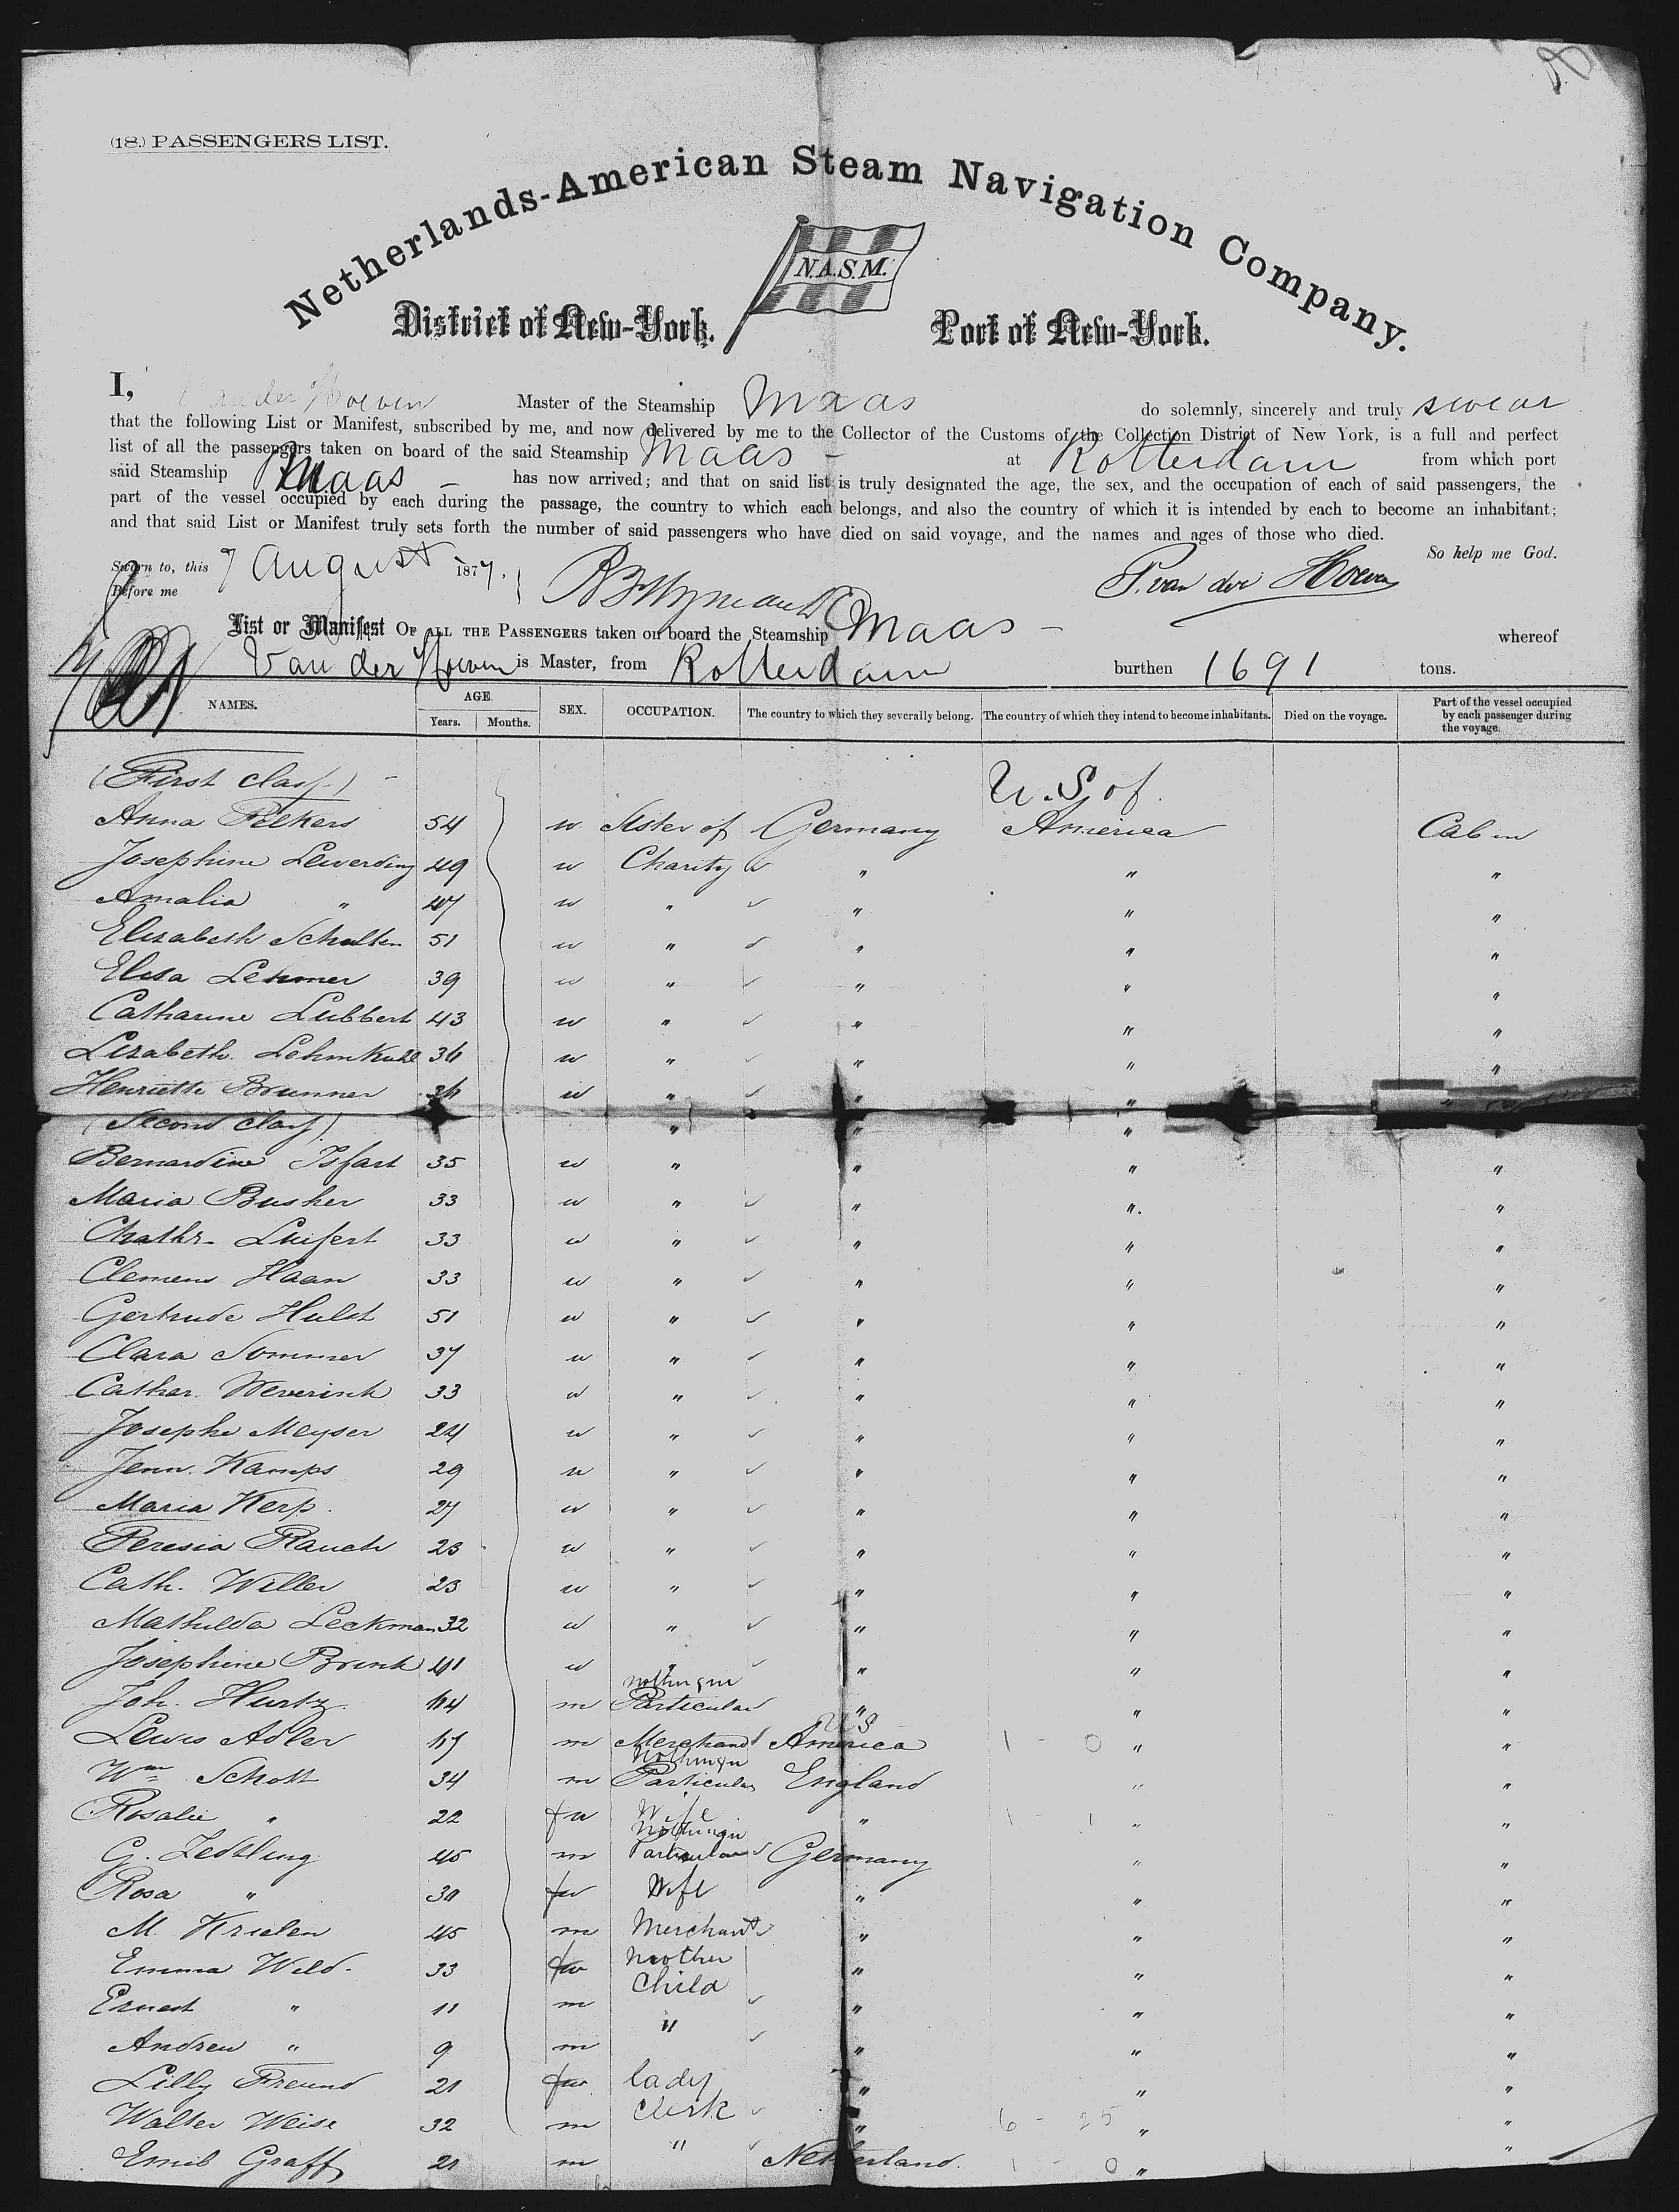 (18.) PASSENGERS LIST.
Netherlands-American Steam Navigation Company.
N.A.S.M.
District of New-York. Port of New-York.
I, Van der Hoeven Master of the Steamship Maas do solemnly, sincerely and truly swear
that the following List or Manifest, subscribed by me, and now delivered by me to the Collector of the Customs of the Collection District of New York, is a full and perfect
list of all the passengers taken on board of the said Steamship Maas - at Rotterdam from which port
said Steamship Maas - has now arrived; and that on said list is truly designated the age, the sex, and the occupation of each of said passengers, the
part of the vessel occupied by each during the passage, the country to which each belongs, and also the country of which it is intended by each to become an inhabitant;
and that said List or Manifest truly sets forth the number of said passengers who have died on said voyage, and the names and ages of those who died.
So help me God.
Sworn to, this 7 August 1877.
Before me P. van der Hoeven
List or Manifest OF ALL THE PASSENGERS taken on board the Steamship Maas - whereof
Van der Hoeven is Master, from Rotterdam burthen 1691 tons.
NAMES. AGE. Years. Months. SEX. OCCUPATION. The country to which they severally belong. The country of which they intend to become inhabitants. Died on the voyage. Part of the vessel occupied by each passenger during the voyage.
(First class) - U.S of
Anna Peekers 54 w Sister of Germany America Cabin
Josephine Leverding 49 w Charity " " "
Amalia " 47 w " " " "
Elizabeth Schulten 51 w " " " "
Elisa Lehmer 39 w " " " "
Catharine Lubbert 43 w " " " "
Lizabeth. Lehmkuhl 36 w " " " "
Henriette Brunner 36 w " " "
(Second class) " " "
Bernardine Isfart 35 w " " " "
Maria Busher 33 w " " " "
Chathr. Luifert 33 w " " " "
Clemens Haan 33 w " " " "
Gertrude Hulst 51 w " " " "
Clara Sommer 37 w " " " "
Cathar. Weverink 33 w " " " "
Josepha Meyser 24 w " " " "
Jenn. Kamps 29 w " " " "
Maria Kerp. 27 w " " " "
Teresia Rauch 23 w " " " "
Cath. Willer 23 w " " " "
Mathilda Leckman 32 w " " " "
Josephine Brink 41 w " " " "
Joh. Hurtz. 44 m nothing in Particular " " "
Lewis Adler 47 m Merchant U S America 1 - 0 " "
Wm Schott 34 m Nothing in Particular England " "
Rosalie " 22 fw Wife " 1 1 " "
G. Zedtling 45 m Nothing in Particular Germany " "
Rosa " 30 fw Wife " " "
M. Krielen 45 m Merchant " " "
Emma Weld. 33 fw Mother " " "
Ernest " 11 m Child " " "
Andrew " 9 m " " " "
Lilly Freund 21 fw lady " " "
Walter Weise 32 m Clerk " 6 - 25 " "
Emil Graff 21 m " Netherland. 1 - 0 " "